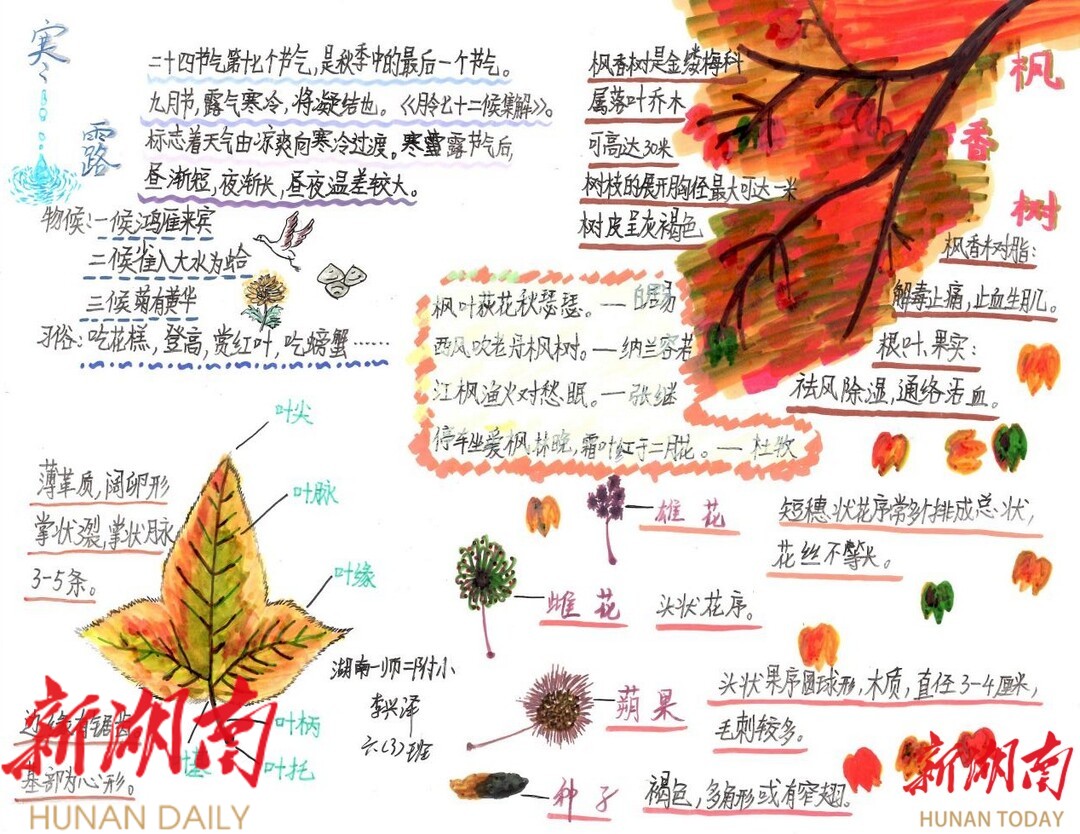 寒露
二十四节气第十七个节气,是秋季中的最后一个节气。
九月节,露气寒冷,将凝结也。《月令七十二候集解》。
标志着天气由凉爽向寒冷过渡。寒露节气后,
昼渐短,夜渐长,昼夜温差较大。
物候:一候鸿雁来宾
二候雀入大水为蛤
三候菊有黄华
习俗:吃花糕,登高,赏红叶,吃螃蟹……
枫香树
枫香树是金缕梅科
属落叶乔木
可高达30米
树枝的展开胸径最大可达一米
树皮呈灰褐色
枫香树脂:
解毒止痛,止血生肌。
根、叶、果实:
祛风除湿,通络活血。
枫叶荻花秋瑟瑟。—白居易
西风吹老丹枫树。—纳兰容若
江枫渔火对愁眠。—张继
停车坐爱枫林晚,霜叶红于二月花。—杜牧
叶尖
叶脉
叶缘
叶柄
叶托
薄革质,阔卵形
掌状3裂,掌状脉
3-5条。
边缘有锯齿
基部为心形。
湖南一师二附小
李兴泽
六(3)班
雄花
短穗状花序常多个排成总状,
花丝不等长。
雌花
头状花序。
蒴果
头状果序圆球形,木质,直径3-4厘米,
毛刺较多。
种子
褐色,多角形或有窄翅。
新湖南
HUNAN DAILY
新湖南
HUNAN TODAY